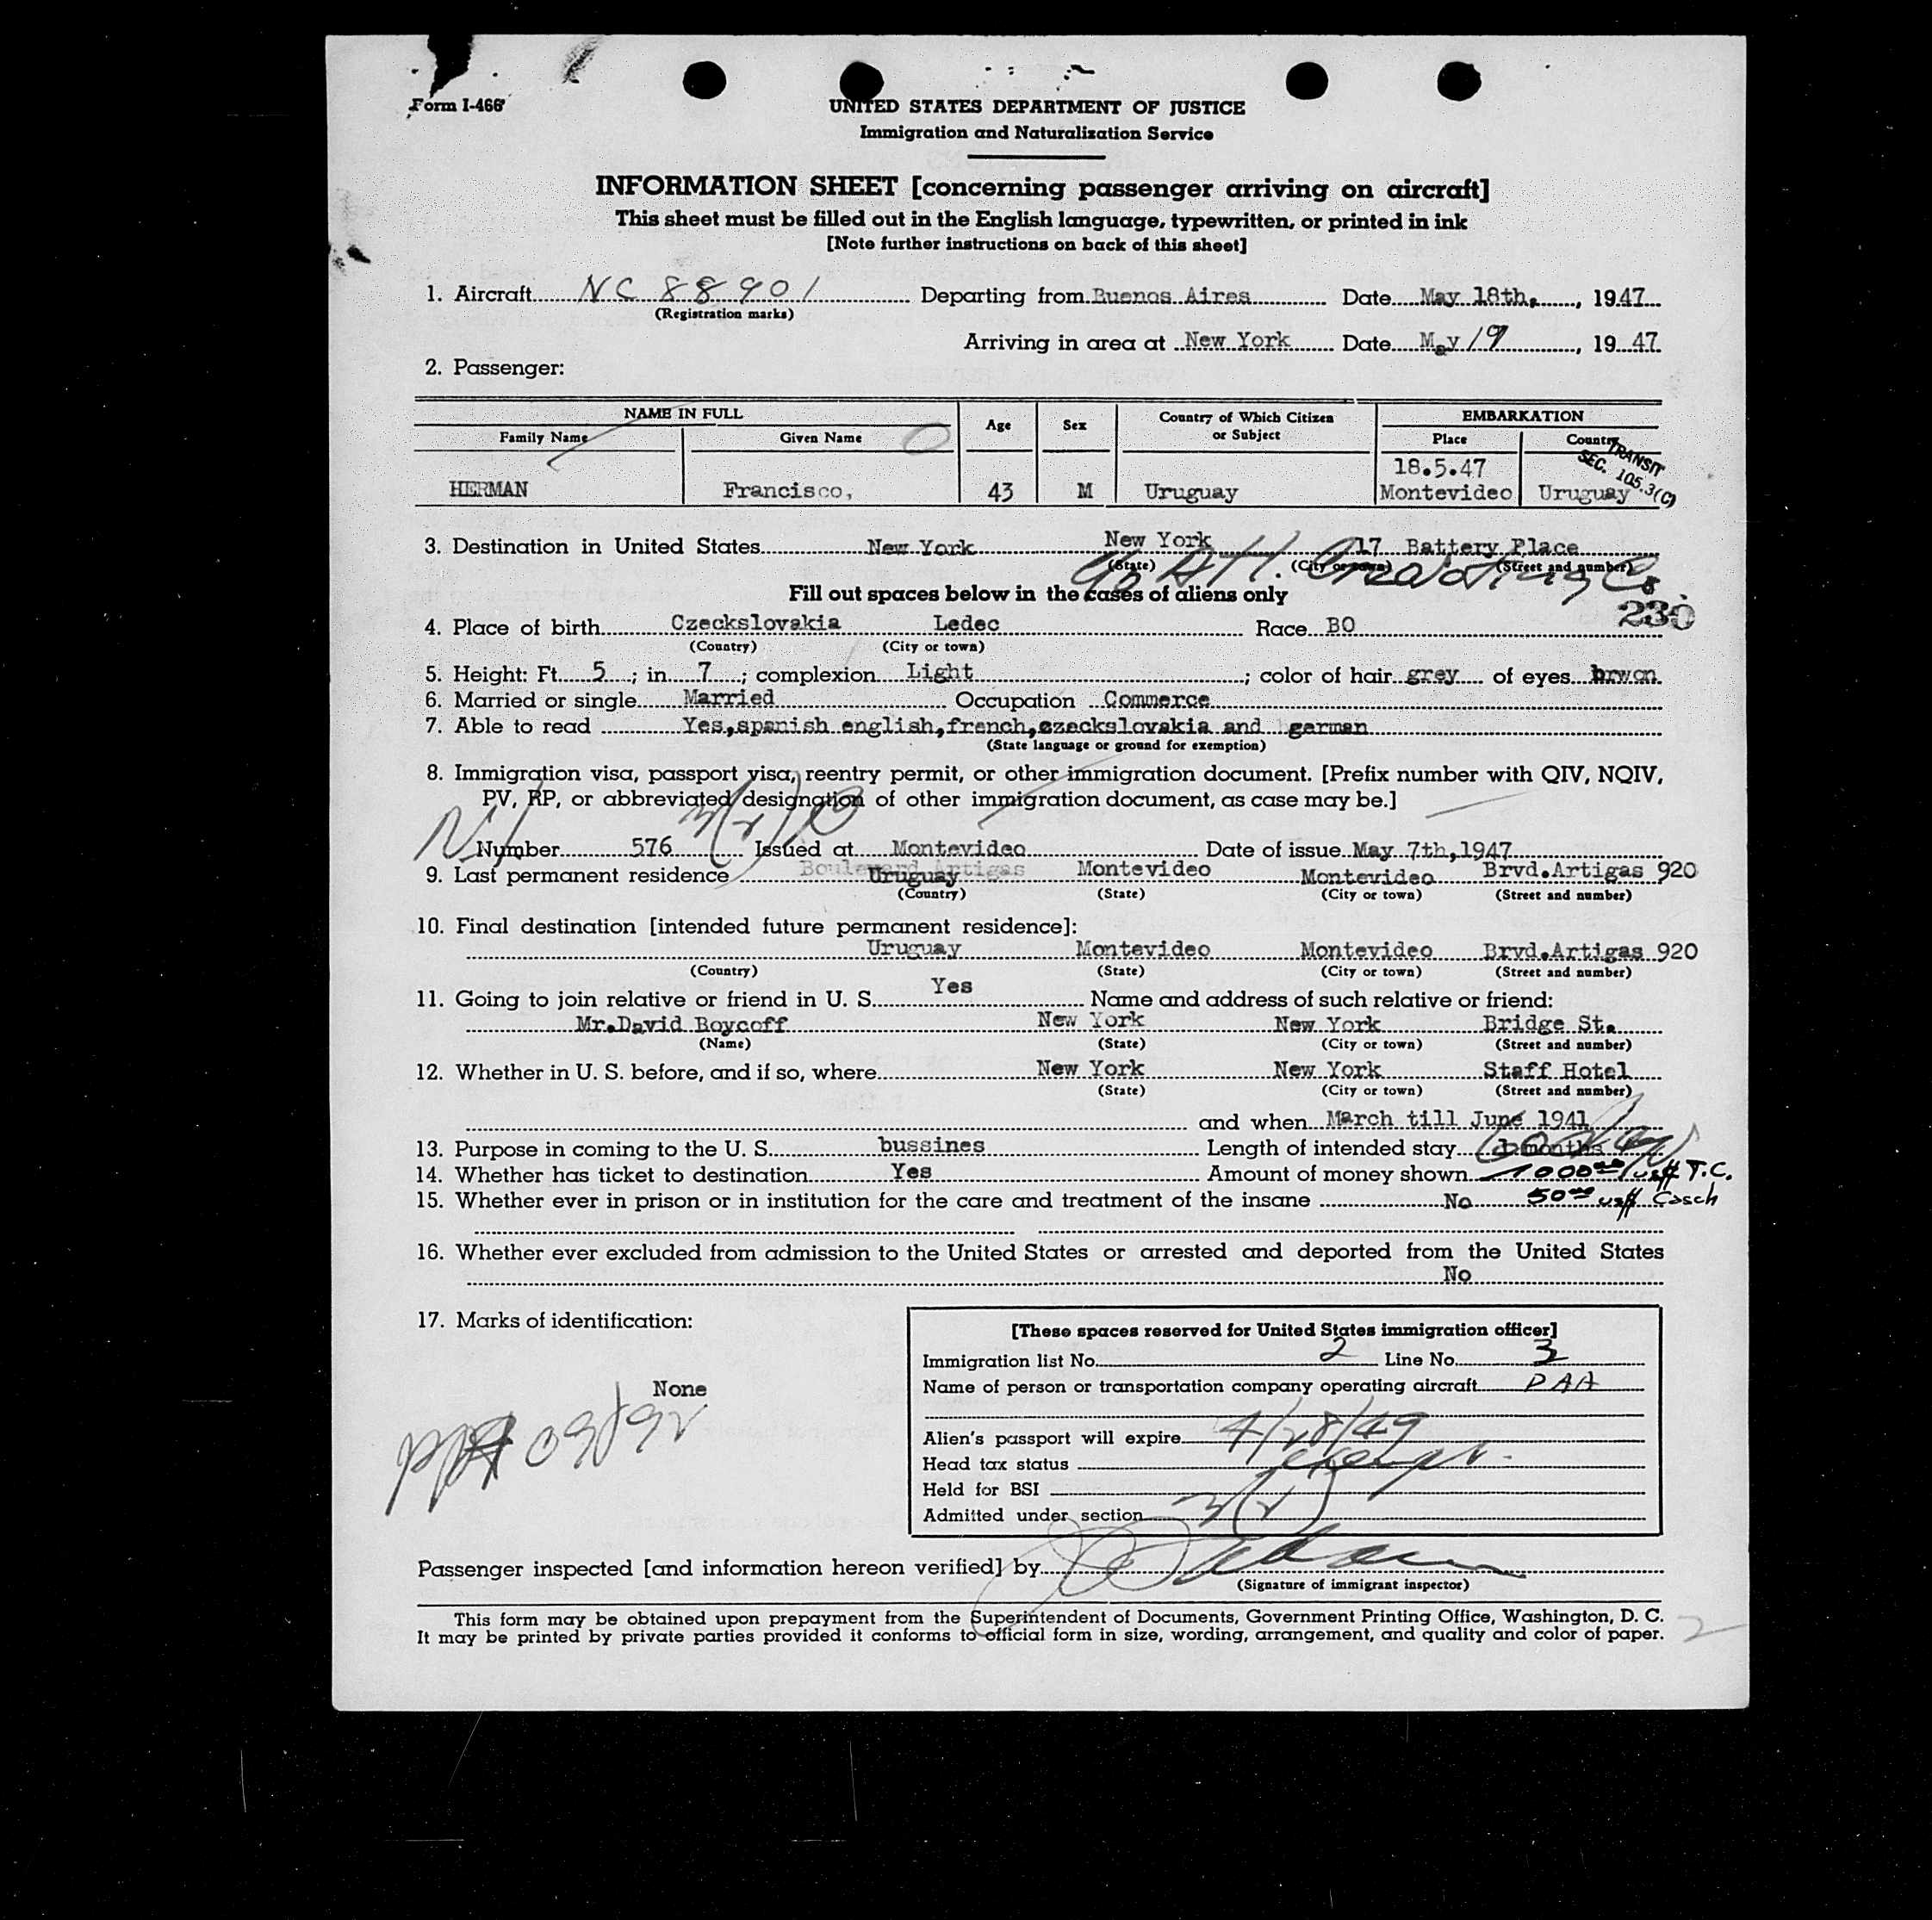 Form I-466
UNITED STATES DEPARTMENT OF JUSTICE
Immigration and Naturalization Service
INFORMATION SHEET [concerning passenger arriving on aircraft]
This sheet must be filled out in the English language, typewritten, or printed in ink
[Note further instructions on back of this sheet]
1. Aircraft NC 88901 Departing from Buenos Aires Date May 18th, , 1947
(Registration marks)
Arriving in area at New York Date May 19 , 19 47
2. Passenger:
NAME IN FULL Age Sex Country of Which Citizen or Subject EMBARKATION
Family Name Given Name Place Country
TRANSIT
SEC. 105.3(C)
18.5.47
HERMAN Francisco, 43 M Uruguay Montevideo Uruguay
3. Destination in United States New York New York 17 Battery Place
(State) (City or town) (Street and number)
Fill out spaces below in the cases of aliens only
230
4. Place of birth Czeckslovakia Ledec Race BO
(Country) (City or town)
5. Height: Ft. 5 ; in 7 ; complexion Light ; color of hair grey of eyes brwon
6. Married or single Married Occupation Commerce
7. Able to read Yes,spanish english,french,czeckslovakia and german
(State language or ground for exemption)
8. Immigration visa, passport visa, reentry permit, or other immigration document. [Prefix number with QIV, NQIV,
PV, RP, or abbreviated designation of other immigration document, as case may be.]
3(2)
Number 576 Issued at Montevideo Date of issue May 7th,1947
9. Last permanent residence Boulevard Artigas Uruguay Montevideo Montevideo Brvd.Artigas 920
(Country) (State) (City or town) (Street and number)
10. Final destination [intended future permanent residence]:
Uruguay Montevideo Montevideo Brvd.Artigas 920
(Country) (State) (City or town) (Street and number)
11. Going to join relative or friend in U. S. Yes Name and address of such relative or friend:
Mr.David Boycoff New York New York Bridge St.
(Name) (State) (City or town) (Street and number)
12. Whether in U. S. before, and if so, where New York New York Staff Hotel
(State) (City or town) (Street and number)
and when March till June 1941
13. Purpose in coming to the U. S. bussines Length of intended stay 60 days months
14. Whether has ticket to destination Yes Amount of money shown 1000.00 us$ T.C.
15. Whether ever in prison or in institution for the care and treatment of the insane No 50.00 us$ Casch
16. Whether ever excluded from admission to the United States or arrested and deported from the United States
No
17. Marks of identification:
None
[These spaces reserved for United States immigration officer]
Immigration list No. 2 Line No. 3
Name of person or transportation company operating aircraft PAA
Alien's passport will expire 4/28/49
Head tax status exempt.
Held for BSI
Admitted under section 3(2)
Passenger inspected [and information hereon verified] by
(Signature of immigrant inspector)
This form may be obtained upon prepayment from the Superintendent of Documents, Government Printing Office, Washington, D. C.
It may be printed by private parties provided it conforms to official form in size, wording, arrangement, and quality and color of paper.
2